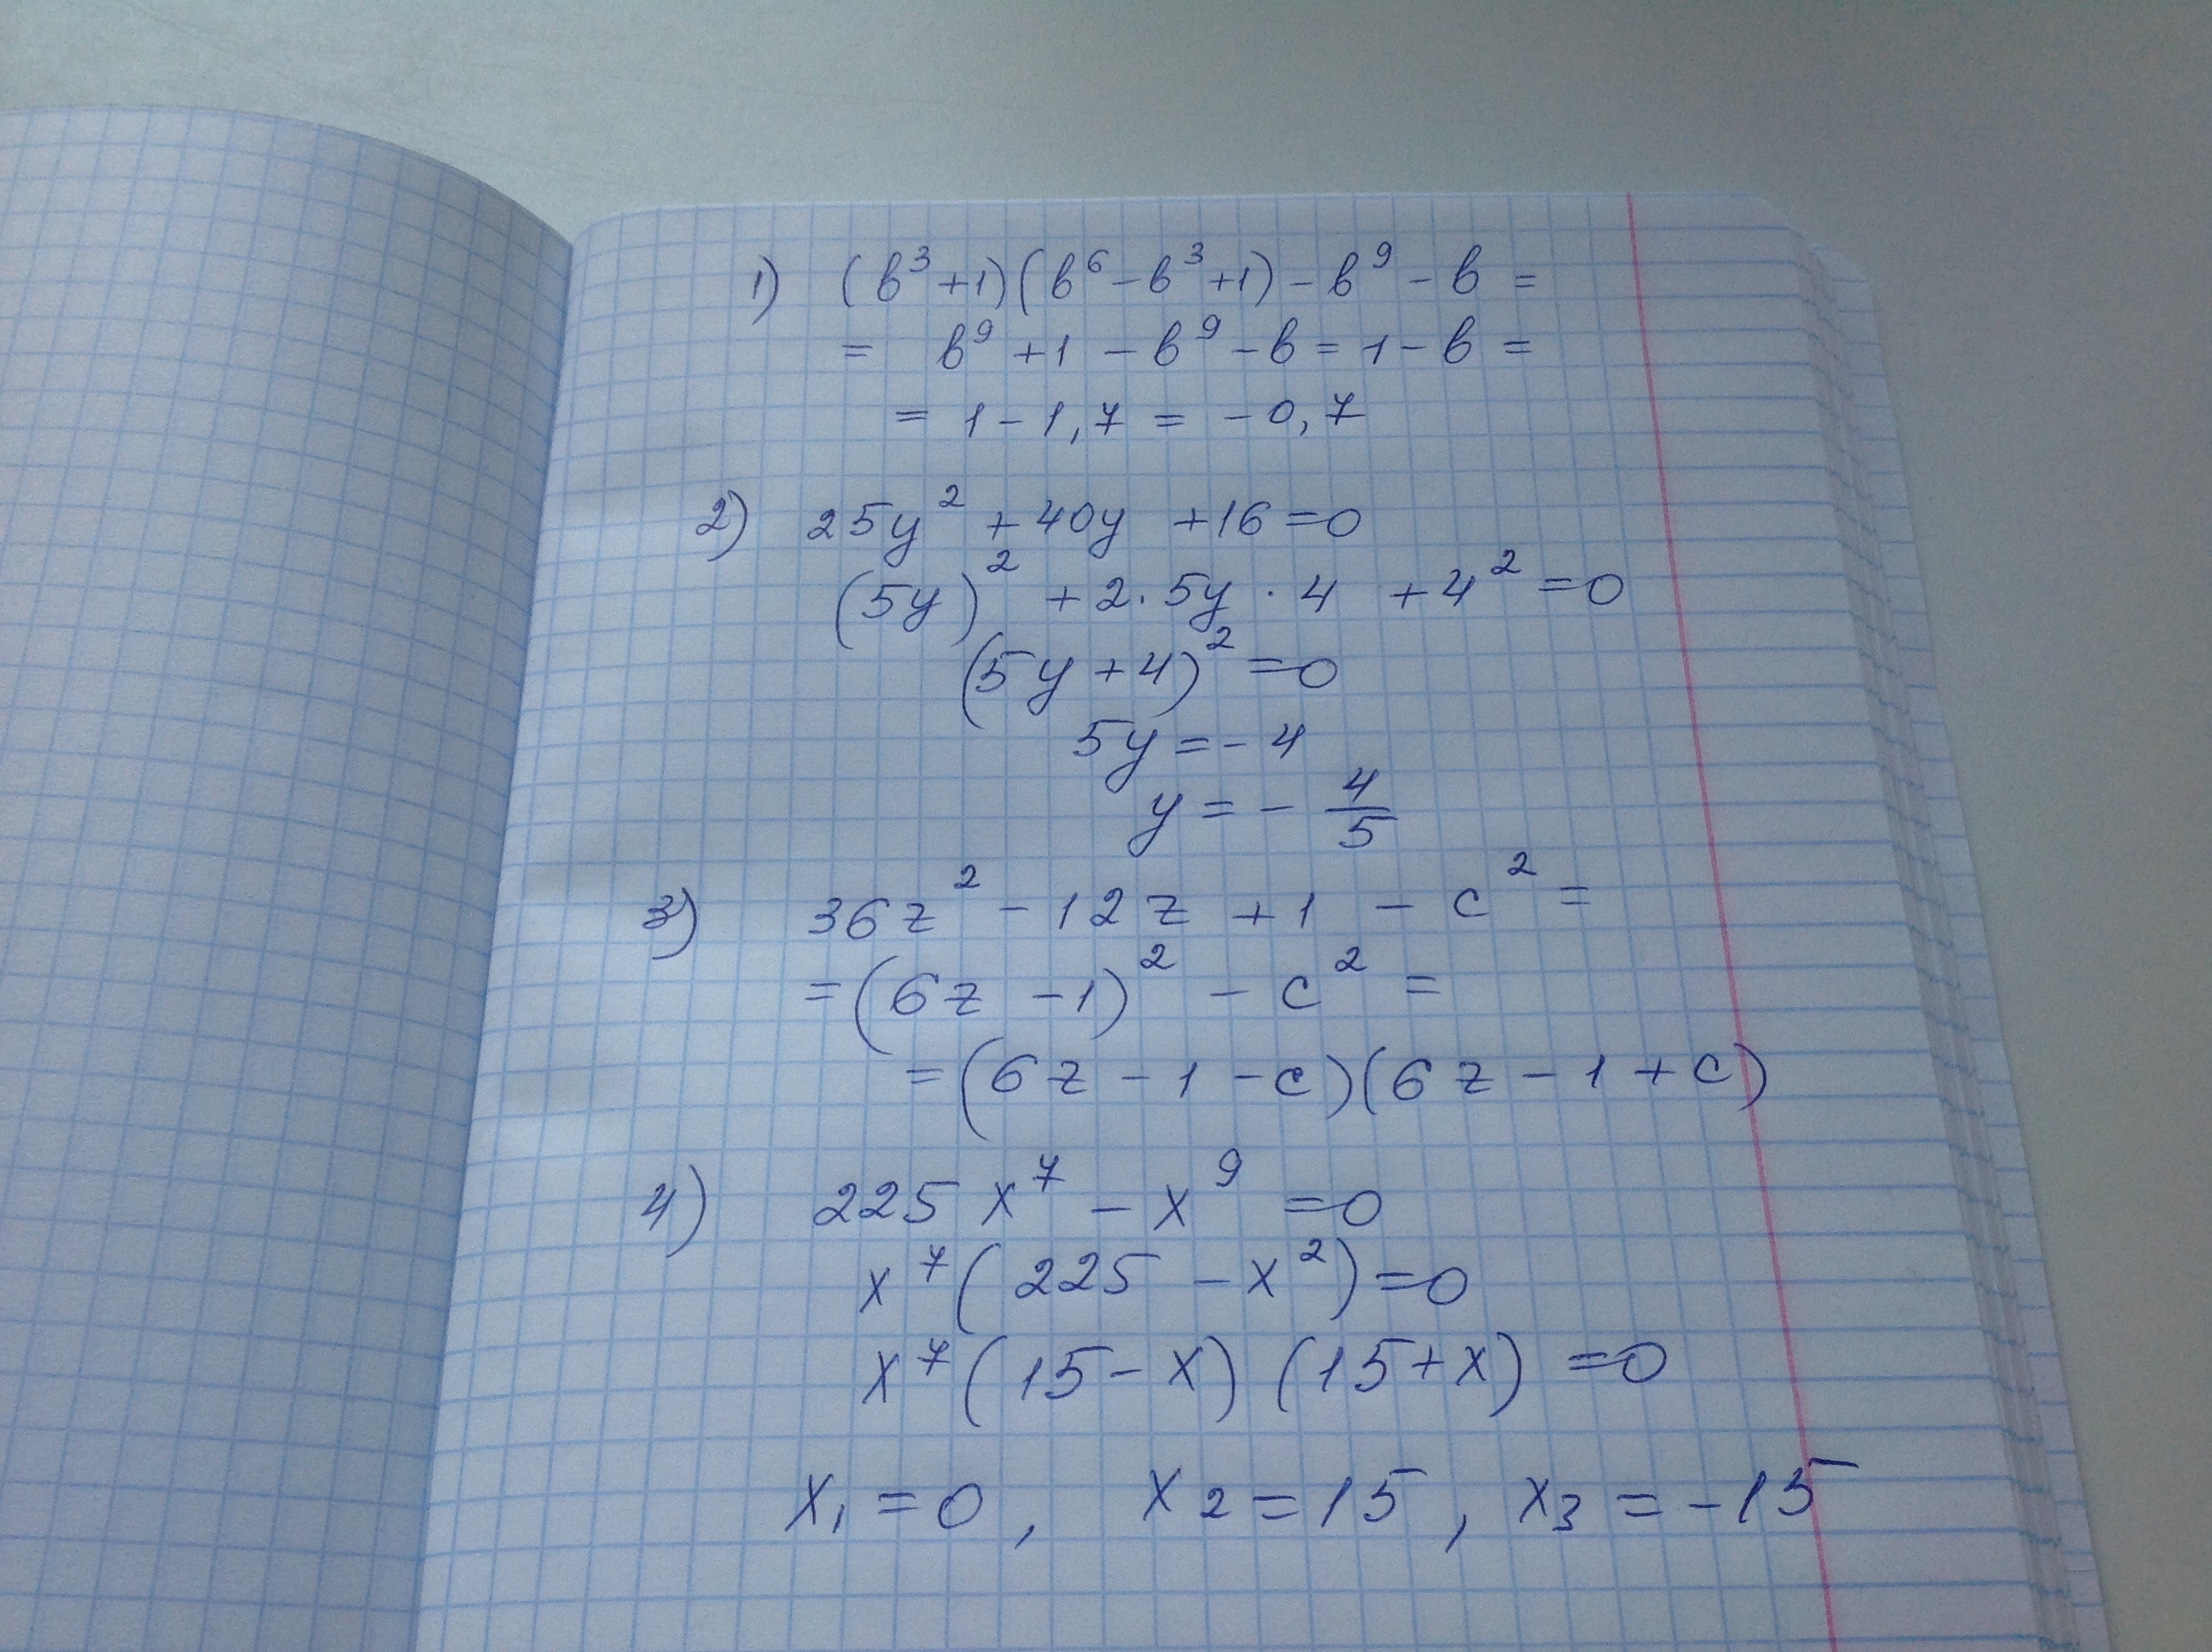 1) (b³+1)(b⁶-b³+1)-b⁹-b=
= b⁹+1-b⁹-b=1-b=
= 1-1,7 = -0,7
2) 25y²+40y+16=0
(5y)²+2·5y·4+4²=0
(5y+4)²=0
5y=-4
y=-4/5
3) 36z²-12z+1-c²=
=(6z-1)²-c²=
=(6z-1-c)(6z-1+c)
4) 225x⁷-x⁹=0
x⁷(225-x²)=0
x⁷(15-x)(15+x)=0
x₁=0, x₂=15, x₃=-15